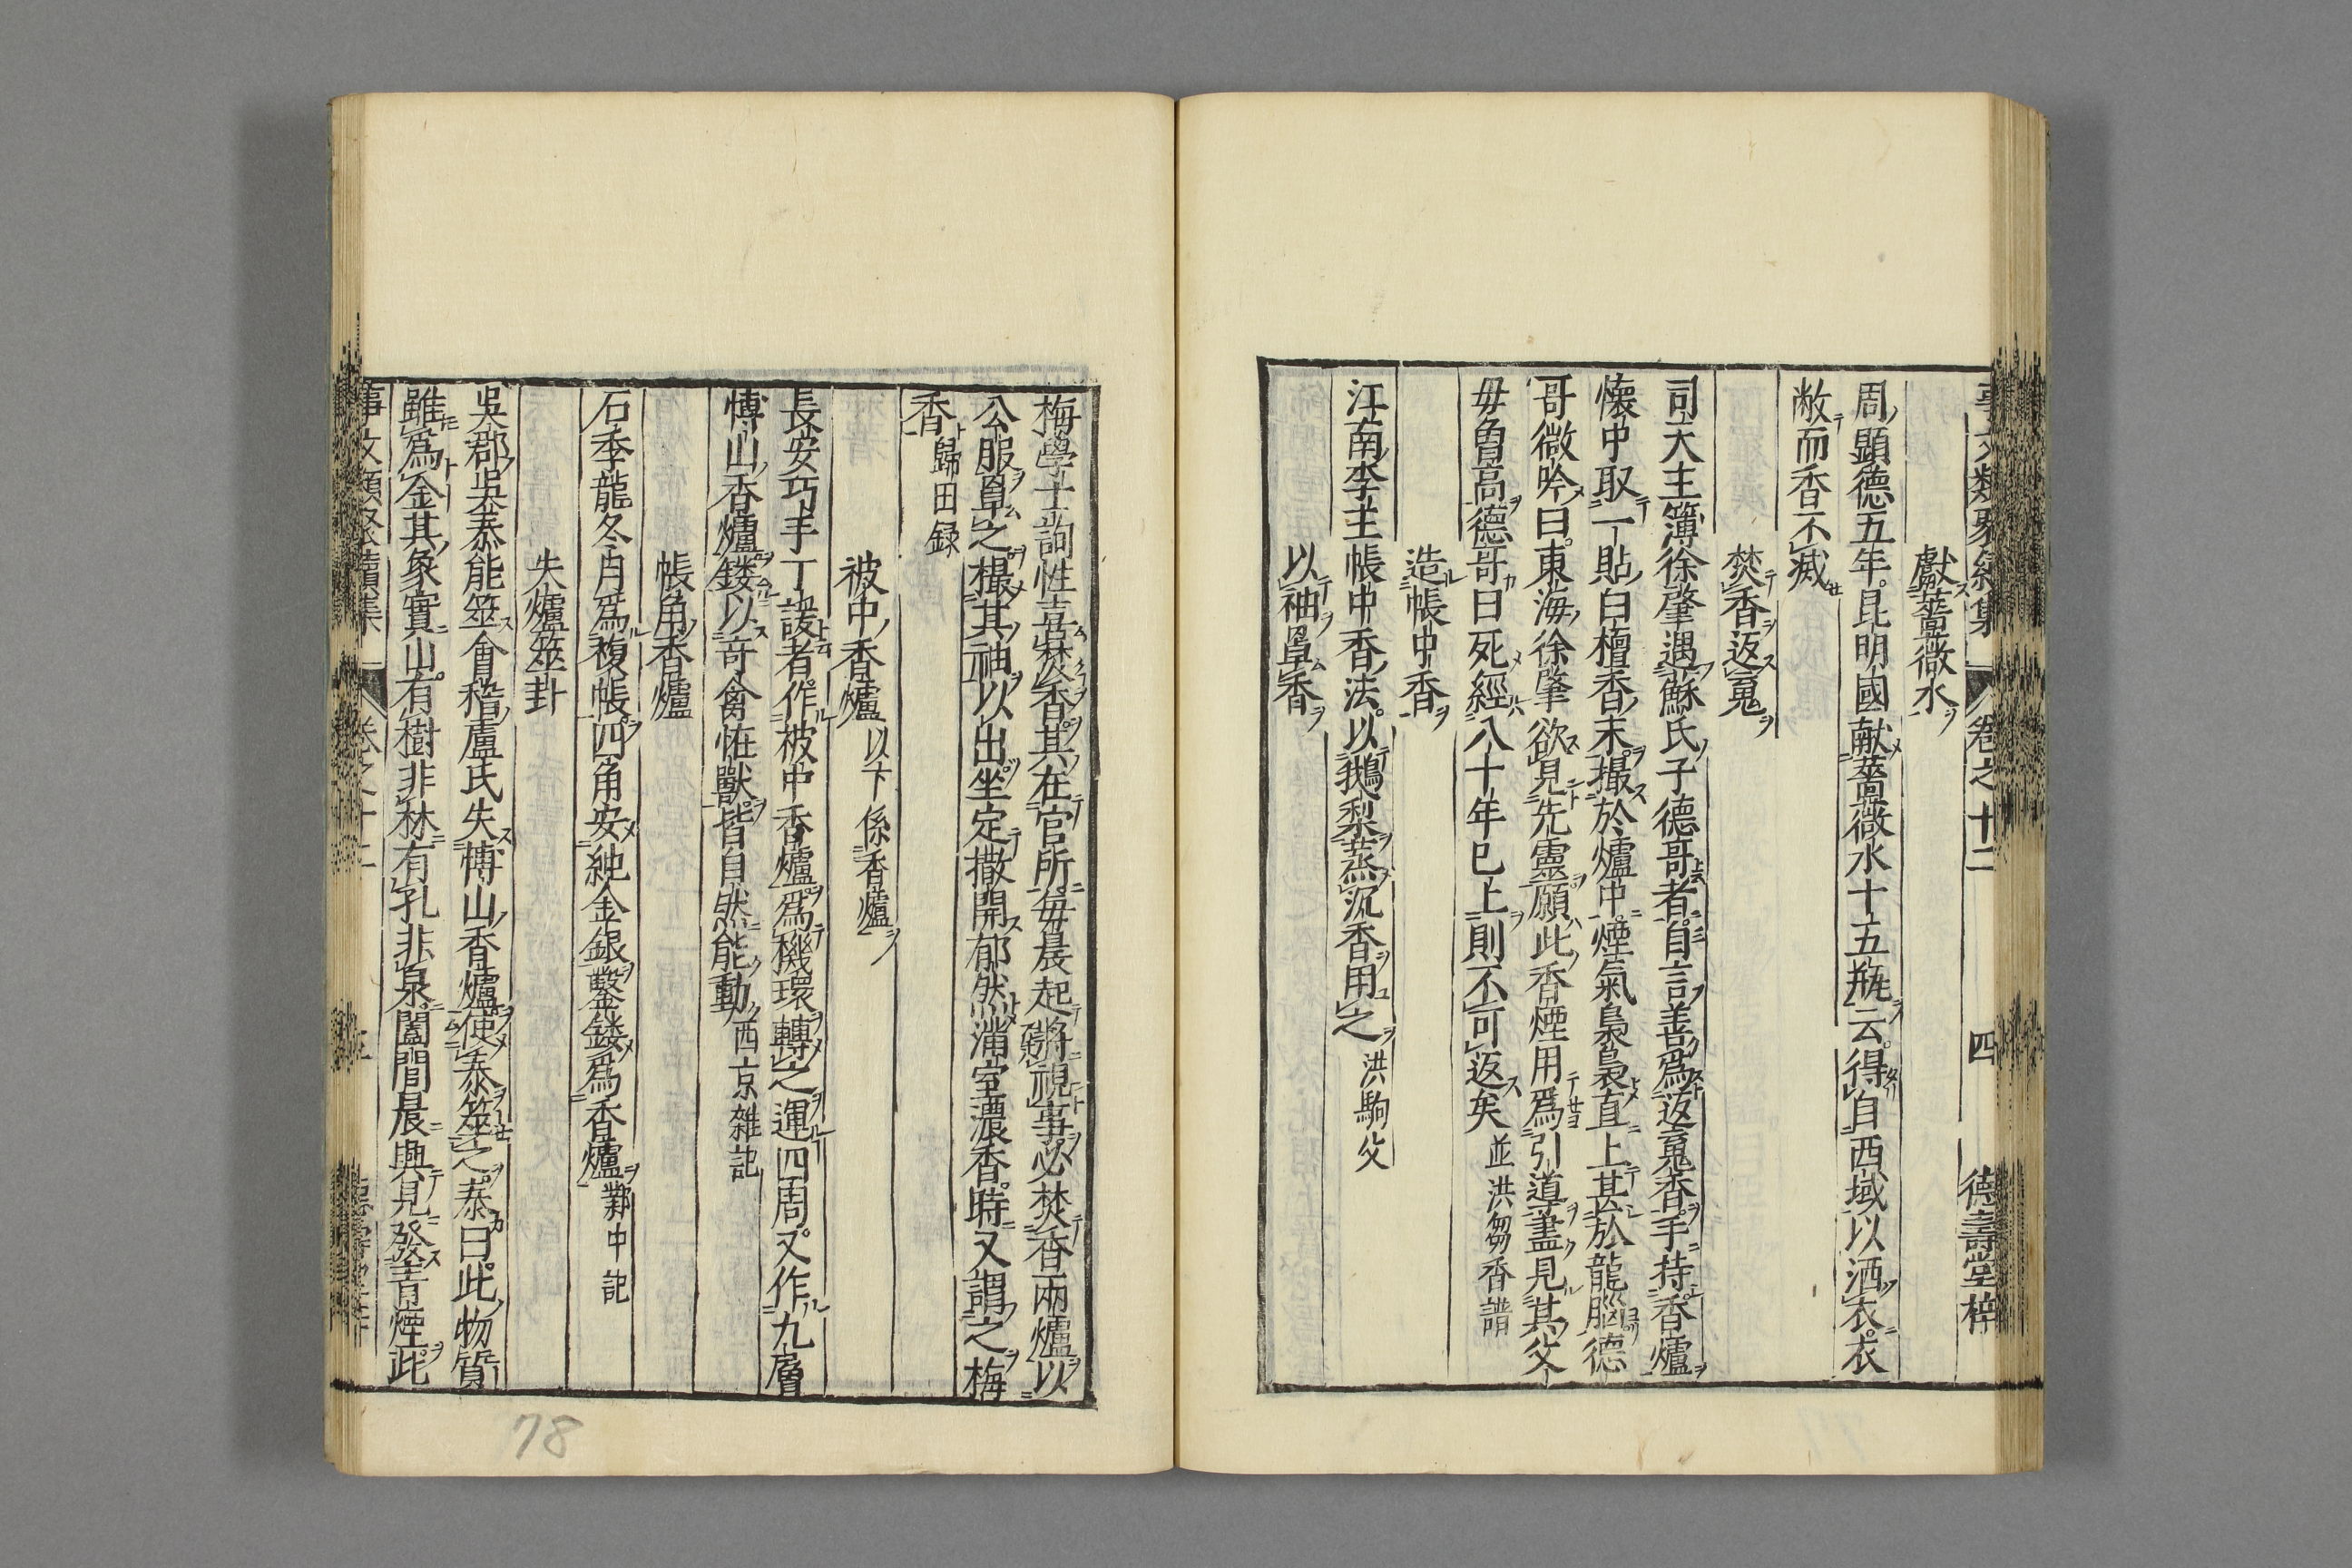 事文類聚續集 卷之十二 四 德壽堂梓
獻薔薇水
周顯德五年昆明國献薔薇水十五瓶云得自西域以洒衣衣
敝而香不滅
焚香返䰟
司天主簿徐肇遇蘇氏子德哥者自言善爲返䰟香手持香爐
懐中取一貼白檀香末撮於爐中煙氣裊裊直上甚於龍腦德
哥微吟曰東海徐肇欲見先靈願此香煙用爲引導盡見其父
毋曾高德哥曰死經八十年已上則不可返矣並洪芻香譜
造帳中香
江南李主帳中香法以鵝梨蒸沉香用之洪駒父
以袖㒻香
梅學士詢性喜焚香其在官所每晨起將視事必焚香兩爐以
公服㒻之撮其袖以出坐定撒開郁然滿室濃香時又謂之梅
香歸田録
被中香爐以下係香爐
長安巧手丁諼者作被中香爐爲機環轉之運四周又作九層
博山香爐鏤以奇禽恠獸皆自然能動西京雑記
帳角香爐
石季龍冬月爲複帳四角安純金銀鑿鏤爲香爐鄴中記
失爐筮卦
吳郡吳泰能筮會稽盧氏失博山香爐使泰筮之泰曰此物質
雖爲金其象實山有樹非林有孔非泉闔閭晨興見發青煙此
事文類聚續集 卷之十二